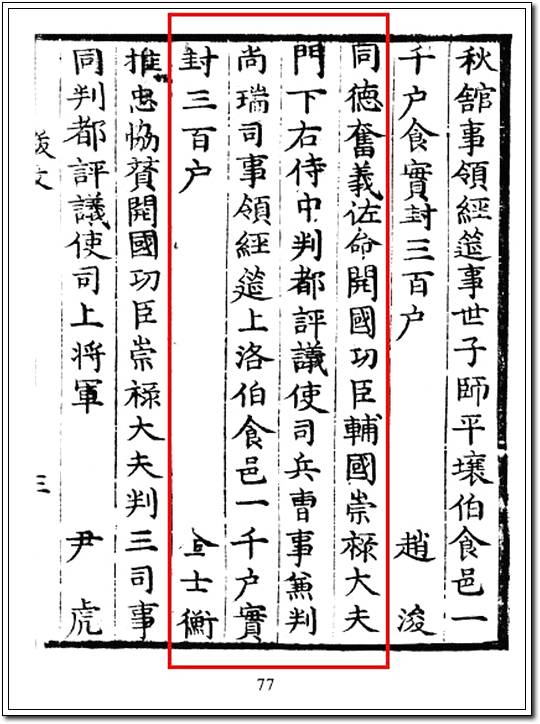 秋舘事領經筵事世子師平壤伯食邑一
千户食實封三百户 趙浚
同德奮義佐命開國功臣輔國崇祿大夫
門下右侍中判都評議使司兵曹事兼判
尚瑞司事領經筵上洛伯食邑一千户實
封三百户 金士衡
推忠協贊開國功臣崇祿大夫判三司事
同判都評議使司上將軍 尹虎
跋文 三
77